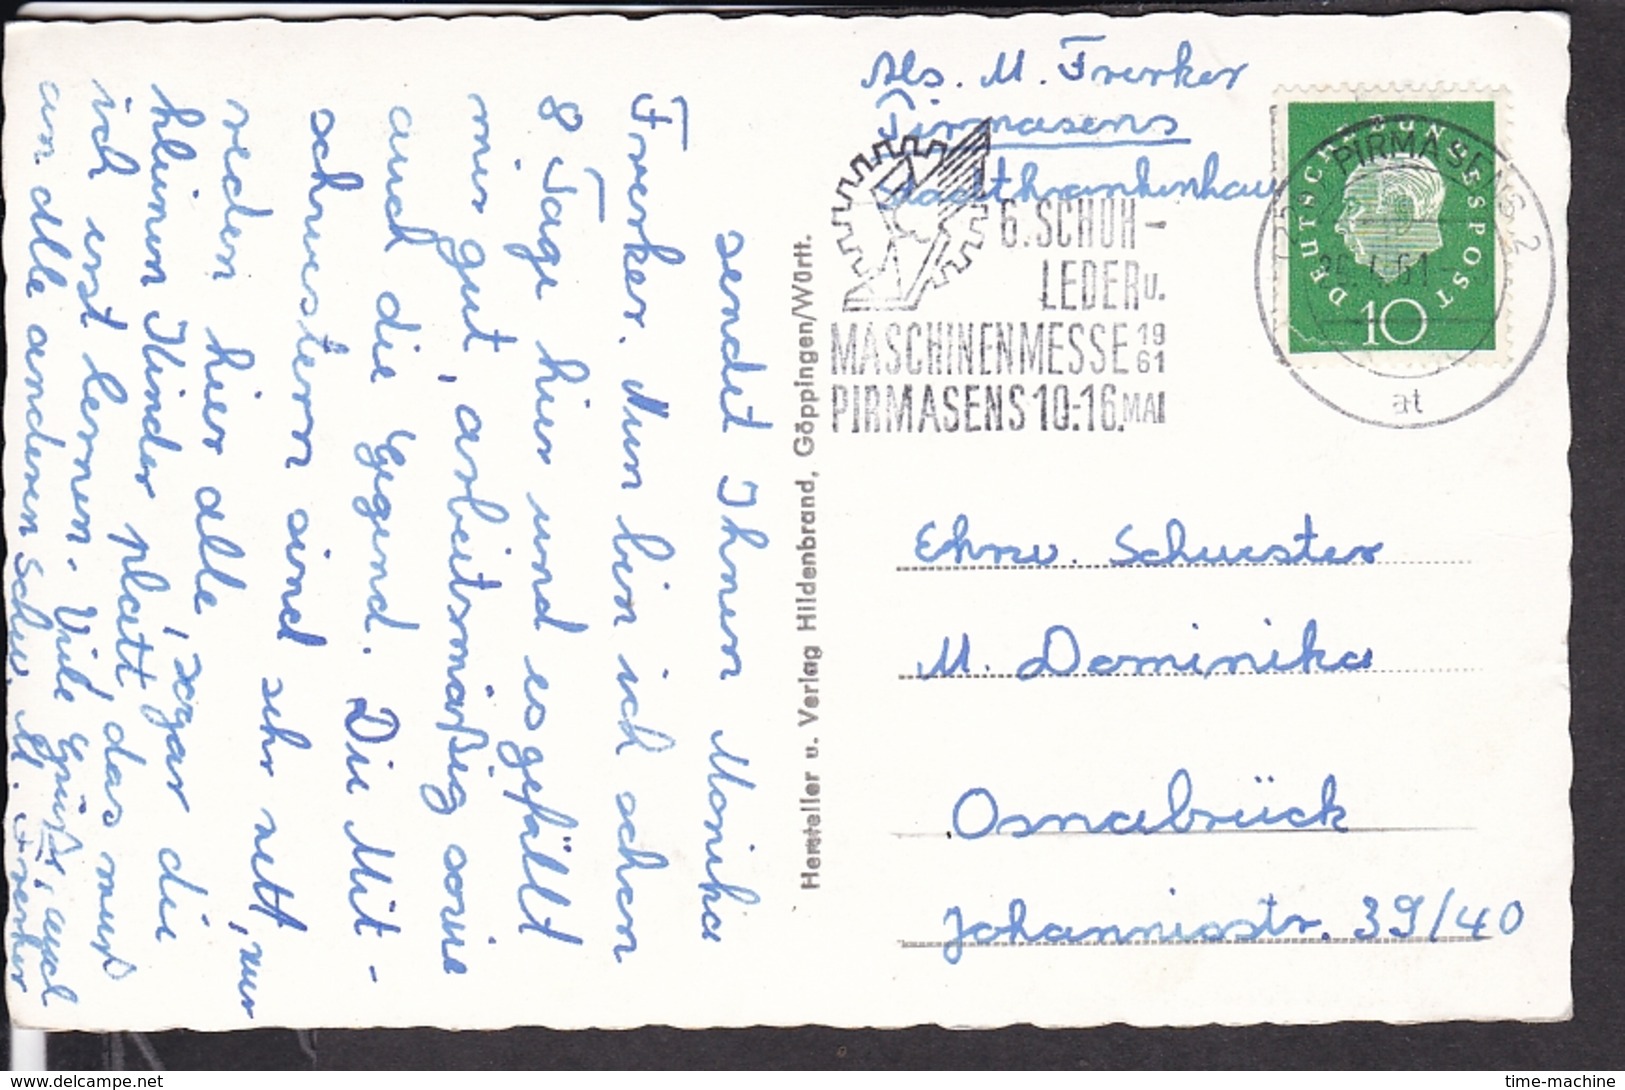 Abs. M. Frerker
Pirmasens
Stadtkrankenhaus
6. SCHUH-
LEDER u.
MASCHINENMESSE 19
61
PIRMASENS 10.-16. MAI
PIRMASENS 2
61
at
DEUTSCHE BUNDESPOST
10
Ehrw. Schwester
M. Dominika
Osnabrück
Johannisstr. 39/40
Hersteller u. Verlag Hildenbrand, Göppingen/Württ.
sendet Ihnen Monika
Frerker. Nun bin ich schon
8 Tage hier und es gefällt
mir gut, arbeitsmäßig sowie
auch die Gegend. Die Mit-
schwestern sind sehr nett, nur
reden hier alle, sogar die
kleinen Kinder platt, das muß
ich erst lernen. Viele Grüße, auch
an alle anderen Schw. M. Frerker
delcampe.net
time-machine